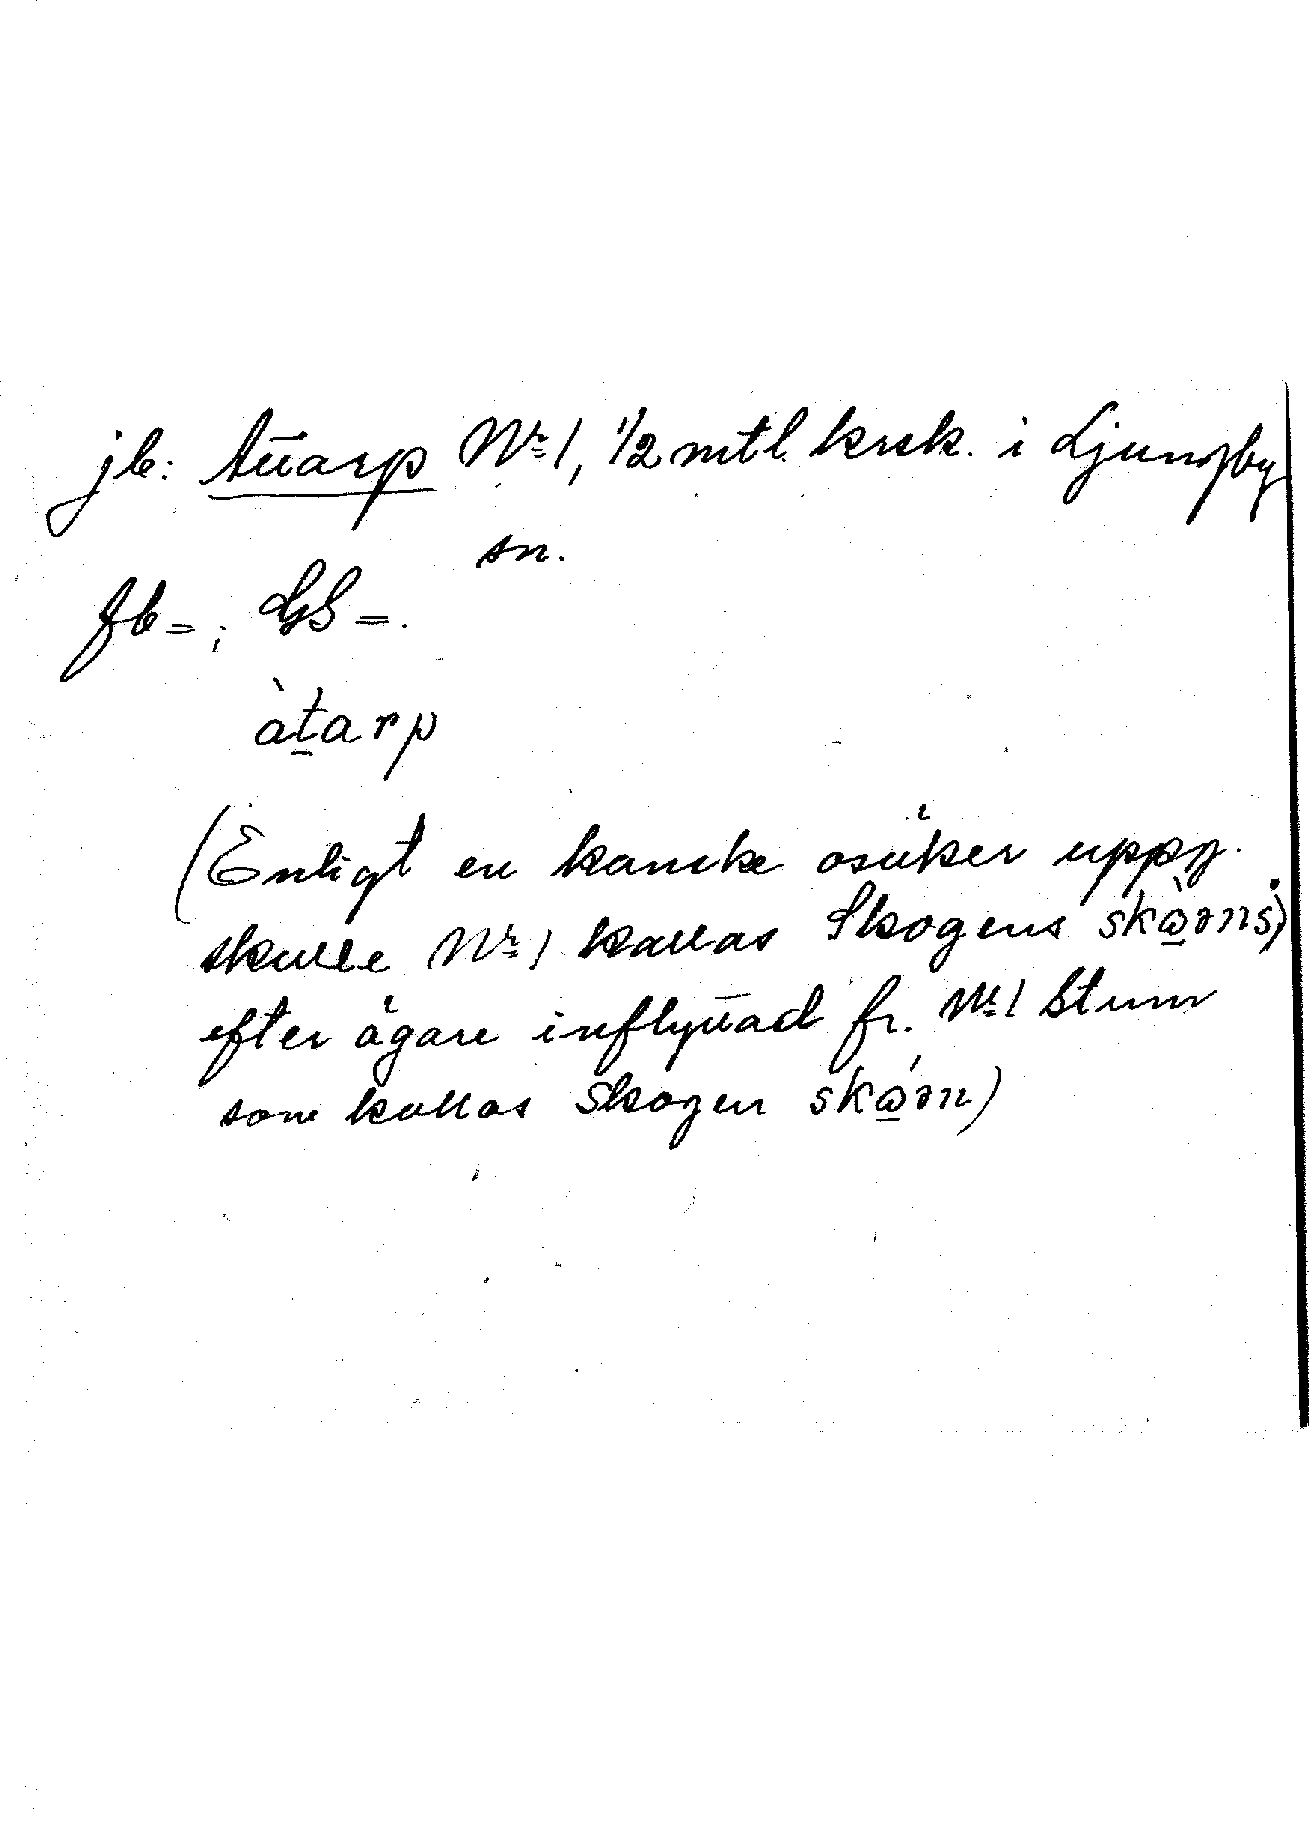 jb: Attarp Nr 1, 1/2 mtl krsk. i Ljungby
sn.
fb =; GS =.
àtarp
(Enligt en kanske osäker uppg.
skulle Nr 1 kallas Skogens skàɷəns)
efter ägare inflyttad fr. Nr 1 Stum
som kallas Skogen skáɷən)